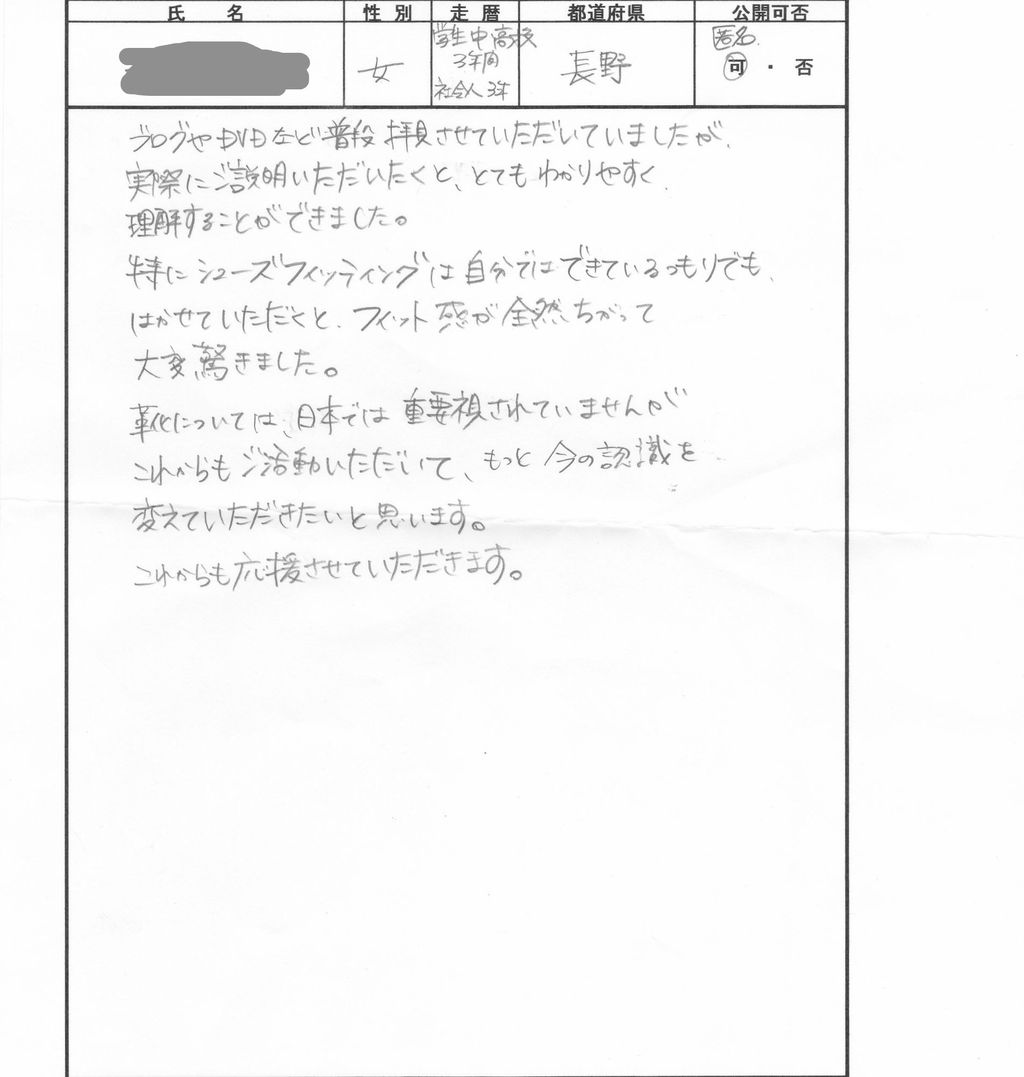 氏 名 性 別 走 暦 都道府県 公開可否
女
学生中高校
3年間
社会人3年
長野
匿名
可 ・ 否
ブログやDVDなど普段拝見させていただいていましたが、
実際にご説明いただいたくと、とてもわかりやすく
理解することができました。
特にシューズフィッティングは自分ではできているつもりでも、
はかせていただくと、フィット感が全然ちがって
大変驚きました。
靴については、日本では重要視されていませんが
これからもご活動いただいて、もっと今の認識を
変えていただきたいと思います。
これからも応援させていただきます。